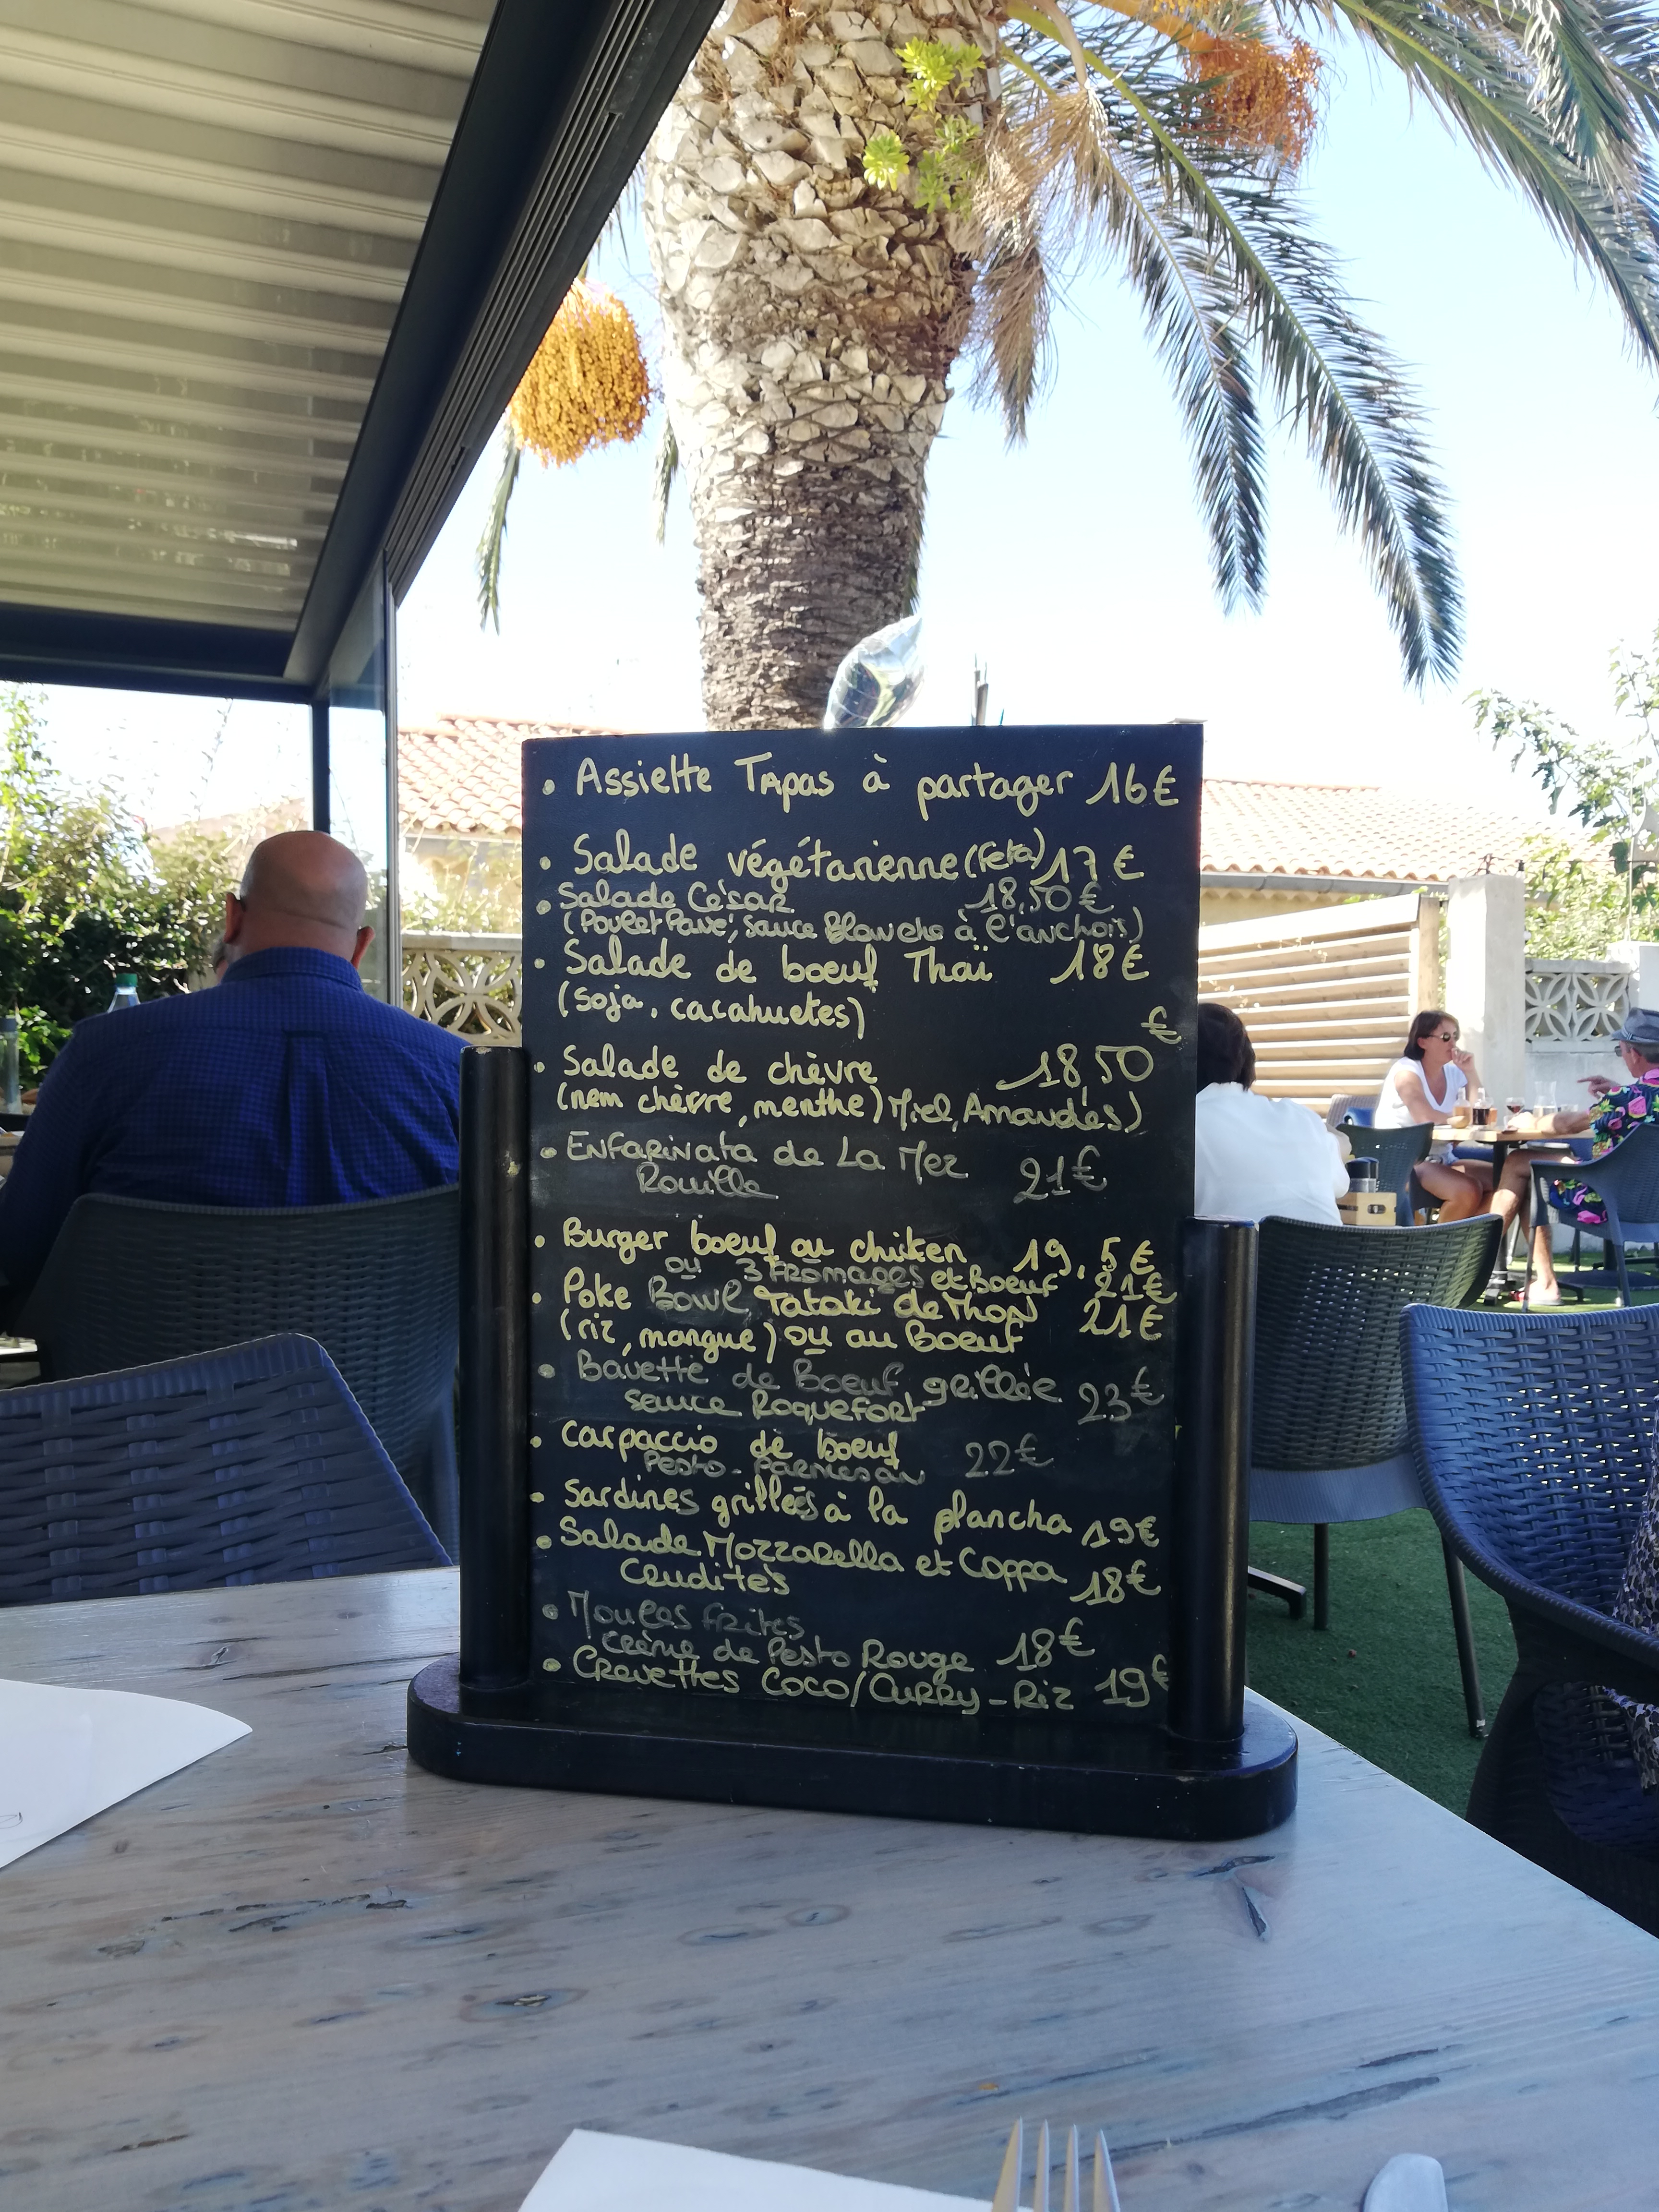 • Assiette Tapas à partager 16€
• Salade végétarienne (Feta) 17€
• Salade César 18,50€
(Poulet Pané, Sauce Blanche à l'anchois)
• Salade de boeuf Thaï 18€
(soja, cacahuetes)
• Salade de chèvre 18,50€
(nem chèvre, menthe) Miel, Amandes)
• Enfarinata de La Mer
Rouille 21€
• Burger boeuf ou chicken 19,5€
ou 3 Fromages et Boeuf 21€
• Poke Bowl Tataki de Thon 21€
(riz, mangue) ou au Boeuf
• Bavette de Boeuf grillée 23€
sauce Roquefort
• Carpaccio de boeuf 22€
Pesto - Parmesan
• Sardines grillées à la plancha 19€
• Salade Mozzarella et Coppa
Crudités 18€
• Moules frites
Crème de Pesto Rouge 18€
• Crevettes Coco/Curry - Riz 19€